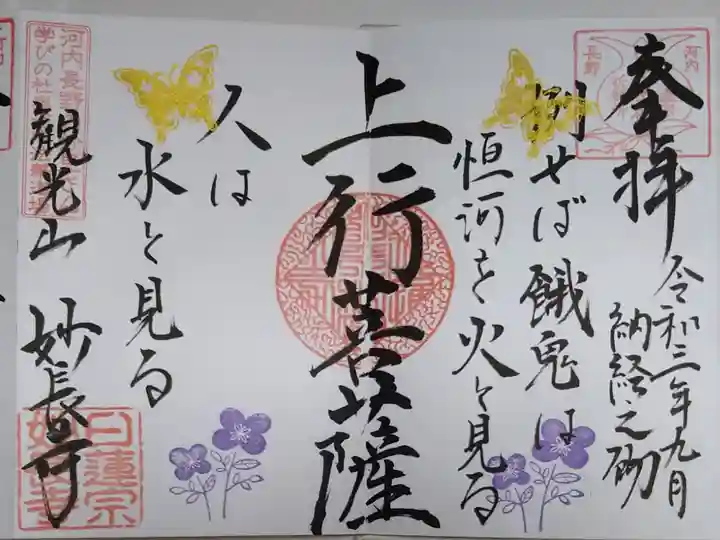 奉拝
令和三年九月
納経之砌
例せば餓鬼は
恒河を火と見る
上行菩薩
人は
水と見る
観光山 妙長寺
河内
長野
河内長野
学びの社
日蓮宗
妙長寺